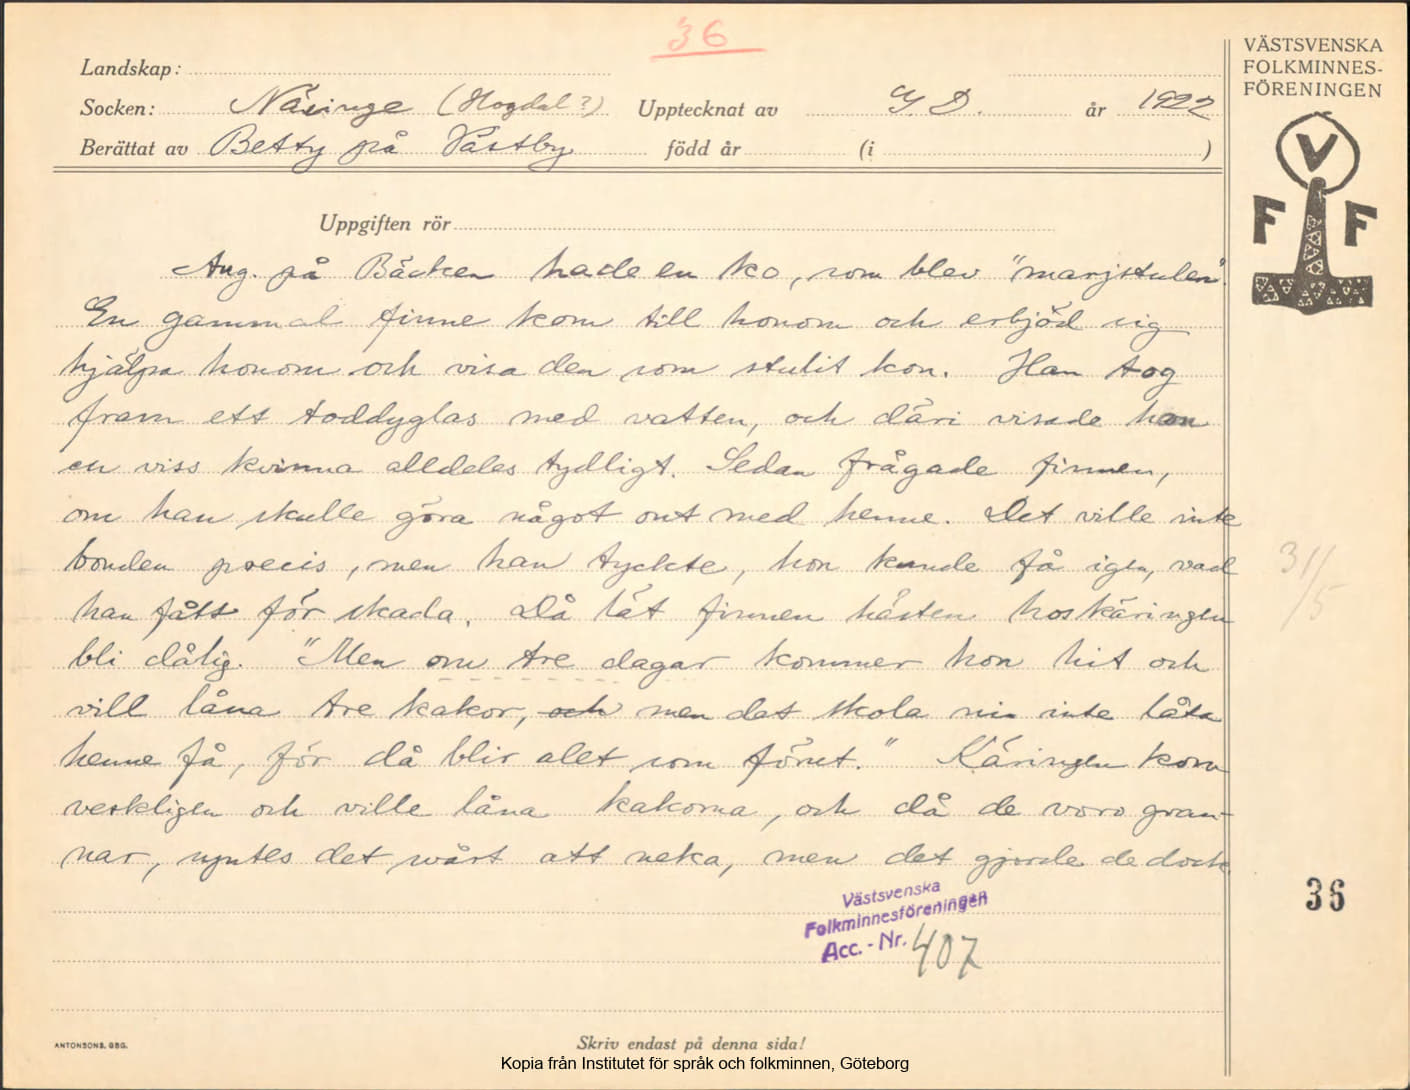 36
Landskap:
Socken: Näsinge (Hogdal?) Upptecknat av G. D. år 1922
Berättat av Betty på Västby född år (i )
VÄSTSVENSKA
FOLKMINNES-
FÖRENINGEN
V
F F
Uppgiften rör
Aug. på Bäcken hade en ko, som blev "marjstulen".
En gammal finne kom till honom och erbjöd sig
hjälpa honom och visa den som stulit kon. Han tog
fram ett toddyglas med vatten, och däri visade han
en viss kvinna alldeles tydligt. Sedan frågade finnen,
om han skulle göra något ont med henne. Det ville inte
bonden precis, men han tyckte, hon kunde få igen, vad
han fått för skada. Då lät finnen hästen hos käringen
bli dålig. "Men om tre dagar kommer hon hit och
vill låna tre kakor, och men det skola ni inte låta
henne få, för då blir alet som förut." Käringen kom
verkligen och ville låna kakorna, och då de voro gran-
nar, syntes det svårt att neka, men det gjorde de dock.
31/5
36
Västsvenska
Folkminnesföreningen
Acc. - Nr. 407
ANTONSONS, GBG.
Skriv endast på denna sida!
Kopia från Institutet för språk och folkminnen, Göteborg